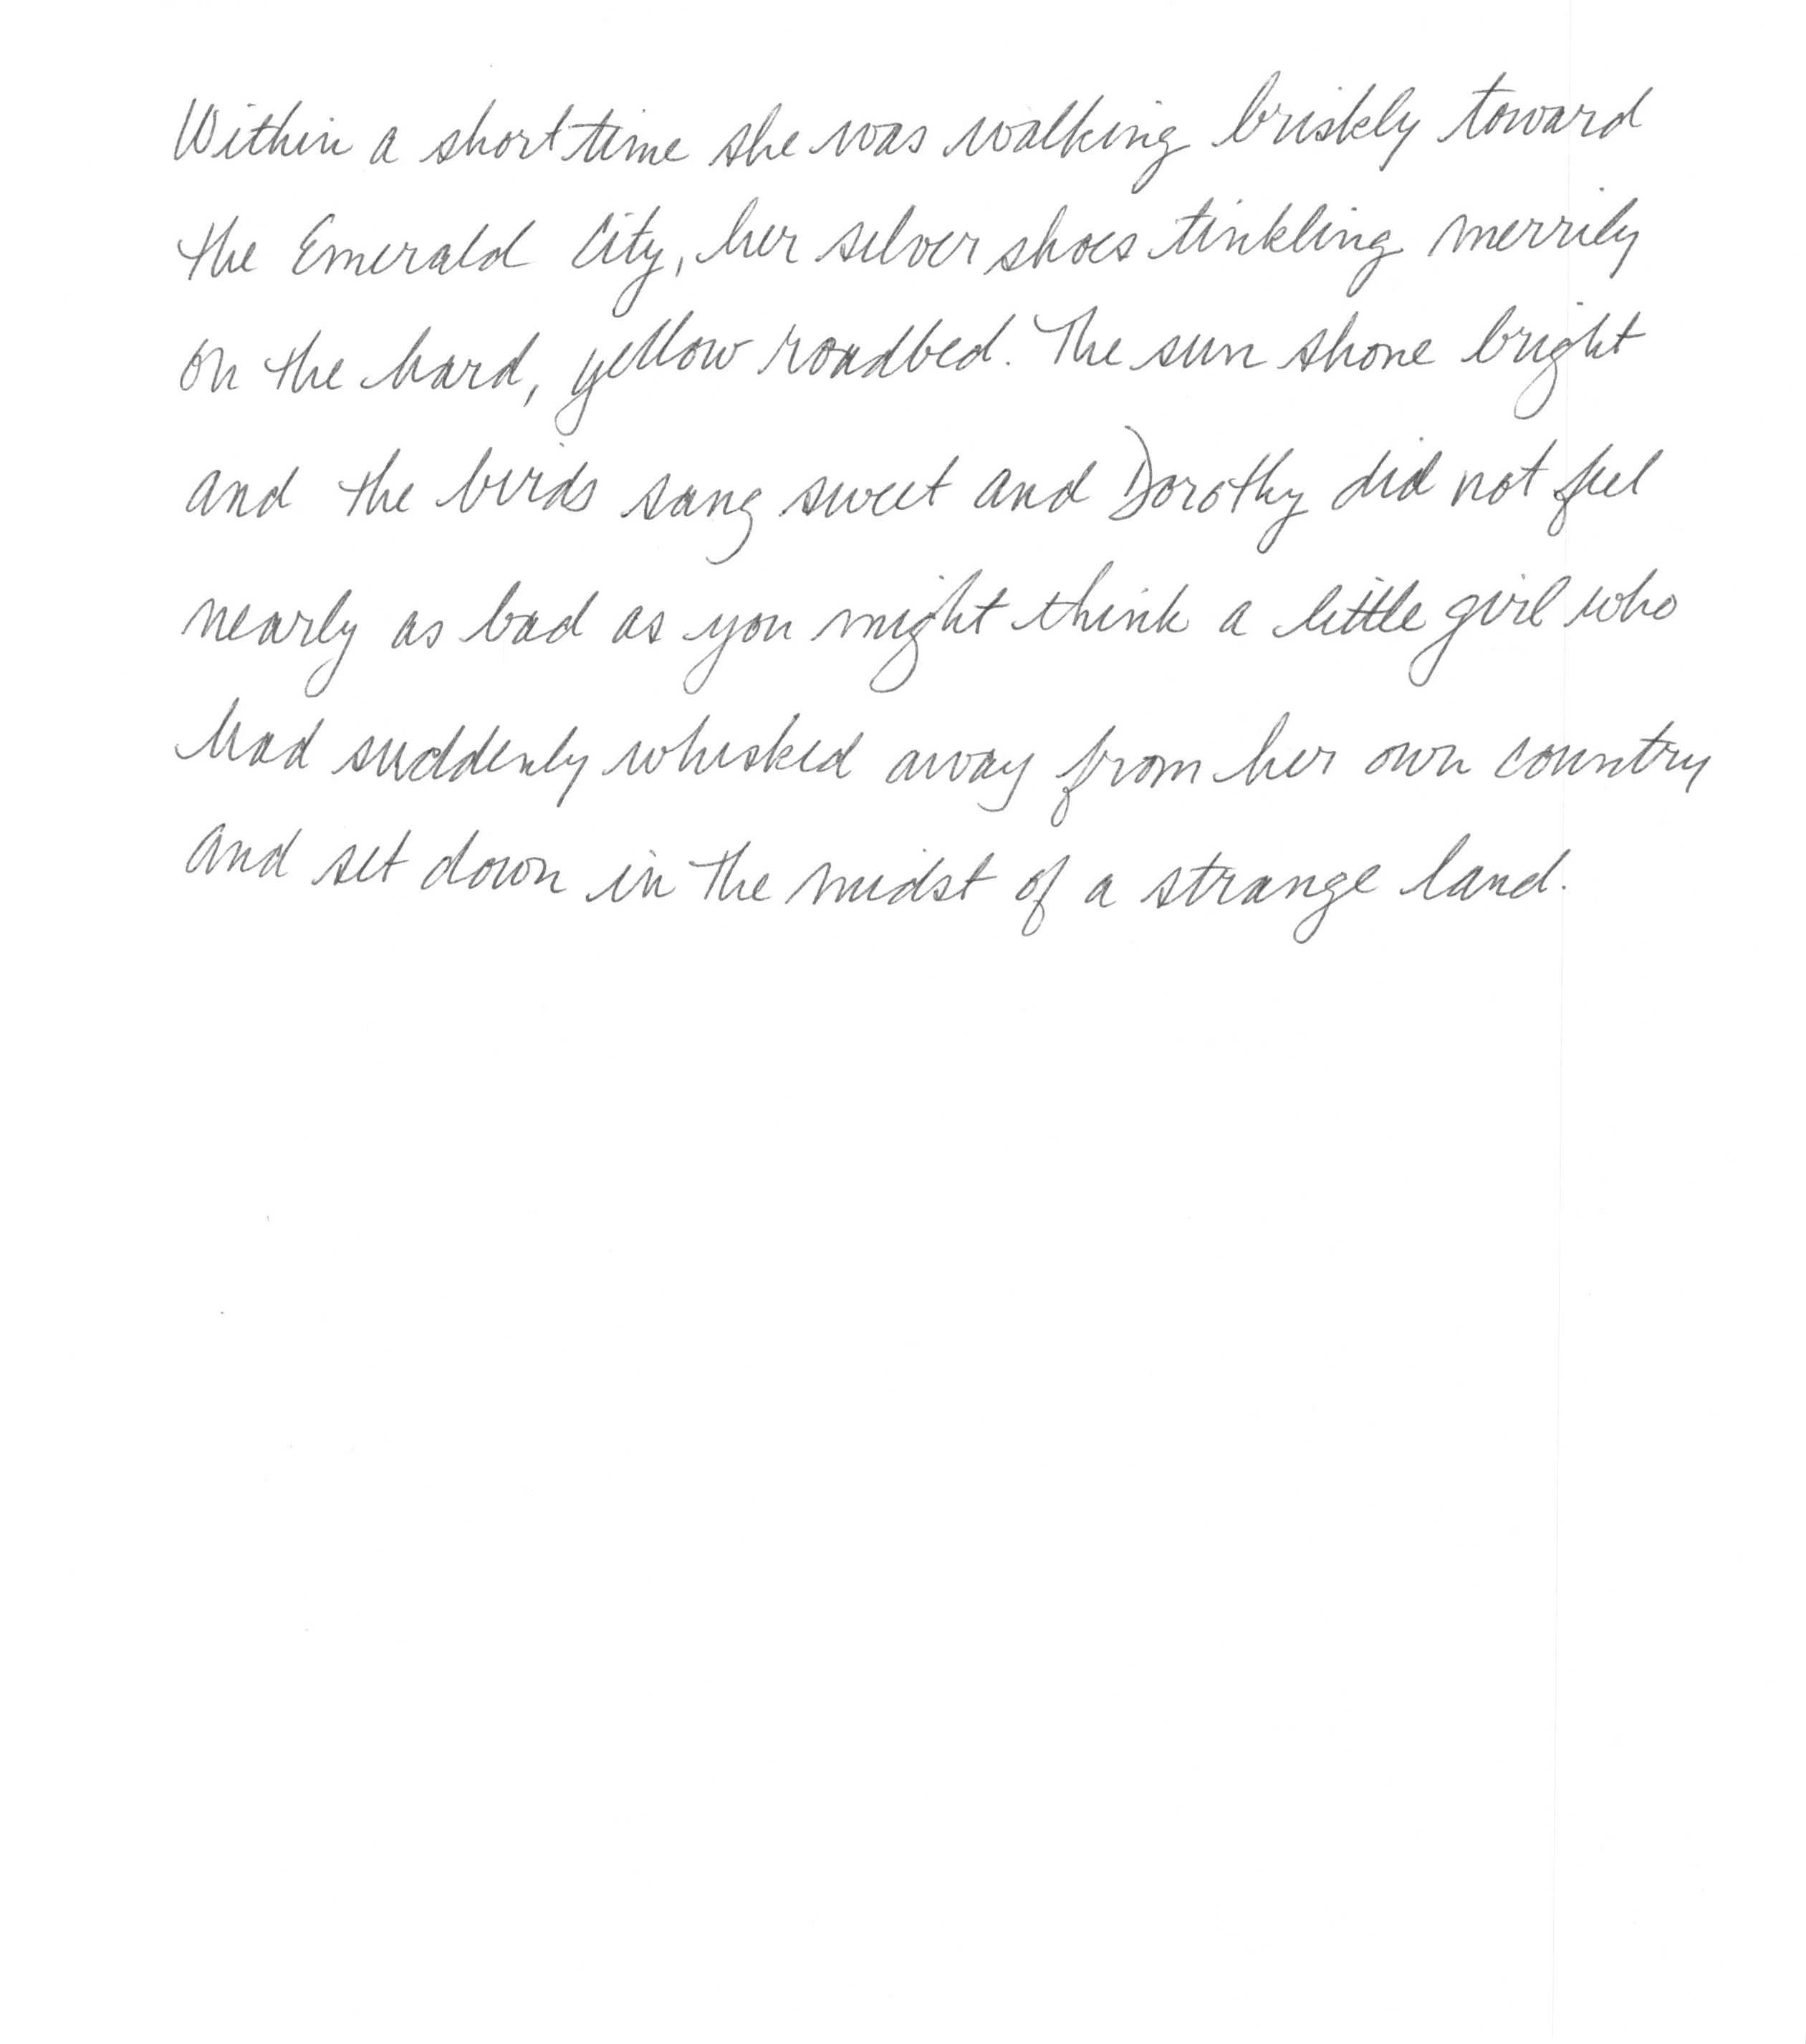 Within a short time she was walking briskly toward
the Emerald City, her silver shoes tinkling merrily
on the hard, yellow roadbed. The sun shone bright
and the birds sang sweet and Dorothy did not feel
nearly as bad as you might think a little girl who
had suddenly whisked away from her own country
and set down in the midst of a strange land.